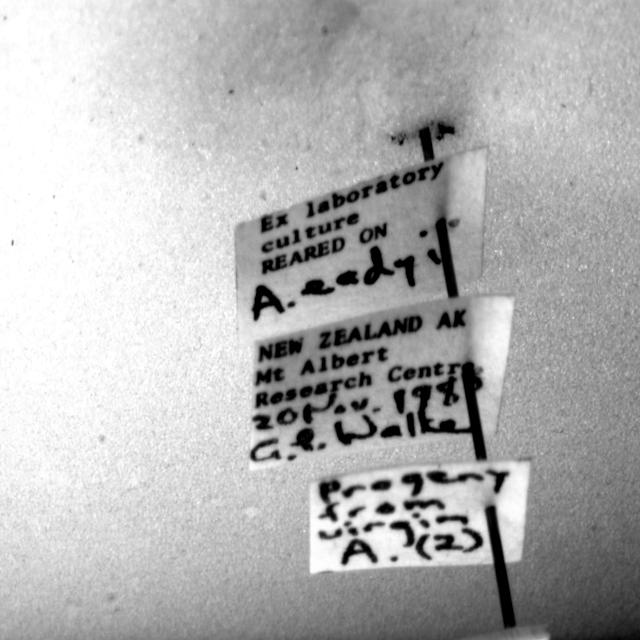 Ex laboratory
culture
REARED ON
A. eadyi
NEW ZEALAND AK
Mt Albert
Research Centre
20 Nov. 198
G.P. Walke
Progeny
from
virgin
A. (2)